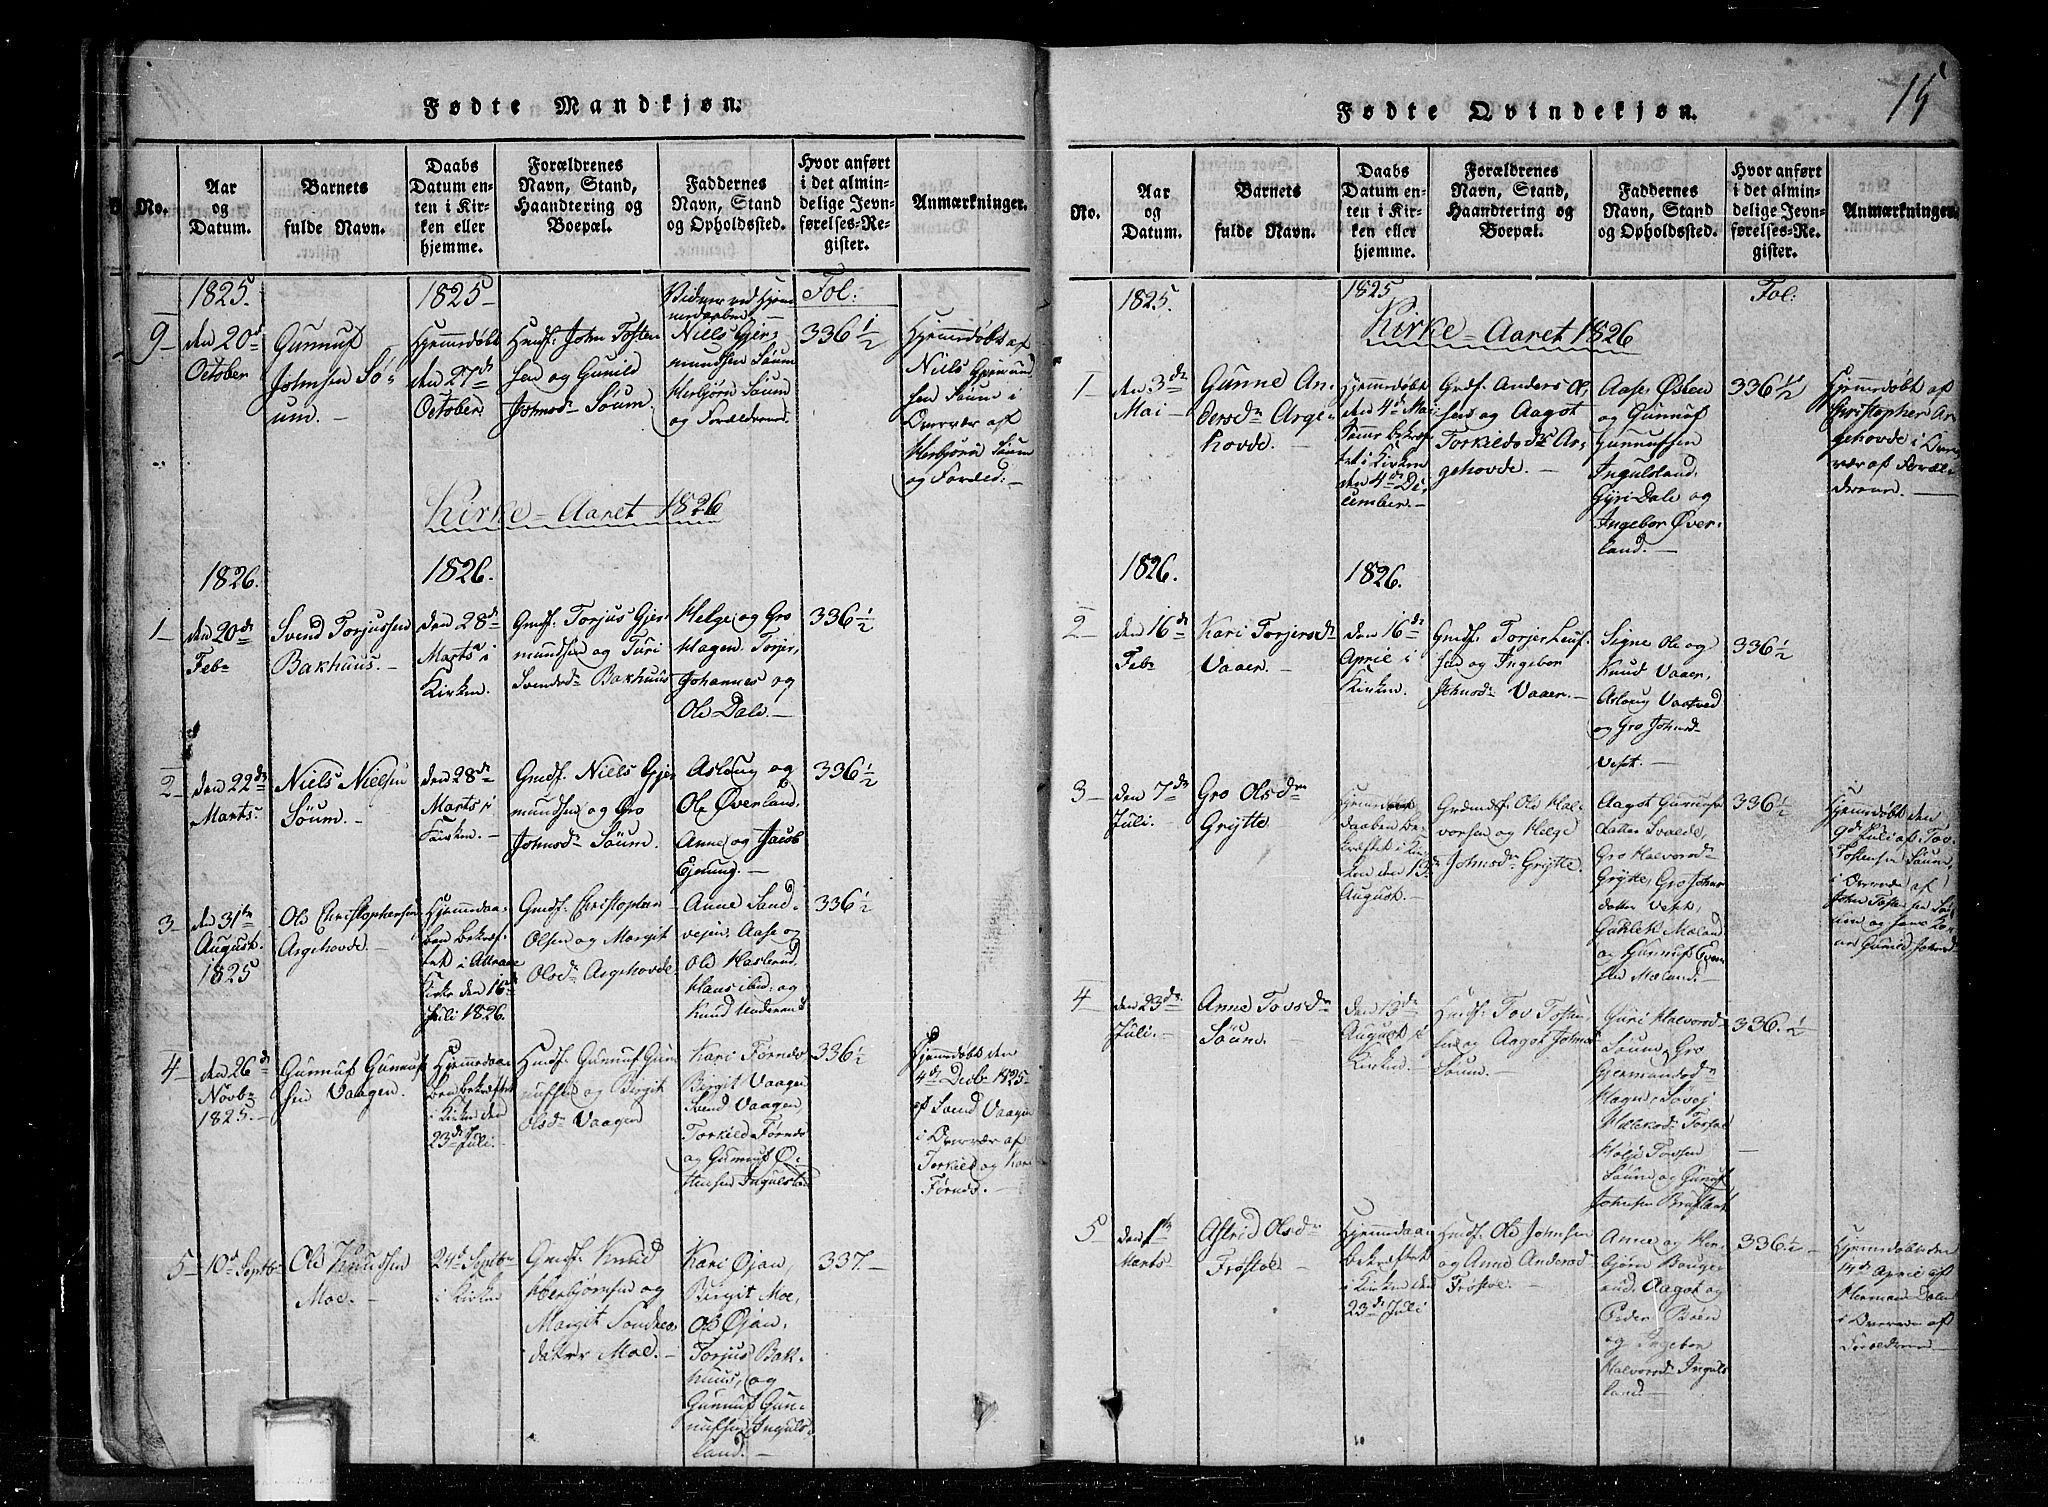 15
Fødte Mandkjøn.
No.
Aar
og
Datum.
Barnets
fulde Navn.
Daabs
Datum en-
ten i Kir-
ken eller
hjemme.
Forældrenes
Navn, Stand,
Haandtering og
Boepæl.
Faddernes
Navn, Stand
og Opholdssted.
Hvor anført
i det almin-
delige Jevn-
førelses-Re-
gister.
Anmærkninger.
1825.
1825
Fol:
9
den 20de
October
Gunnuf
Johnsen Sø-
um.
Hjemmedøbt
den 27de
October
Huusf: John Tosten-
sen og Gunild
Johnsdr Søum.
Niels Gjer-
mundsen Søum
Herbjørn Søum
og Forældrene.
336 1/2
Hjemmedøbt af
Niels Gjermund-
sen Søum i
Overvær af
Herbjørn Søum
og Foræld:
Kirke-Aaret 1826
1826.
1826.
1
den 20de
Febr
Svend Torjussen
Bakhuus.
den 28de
Marts i
Kirken.
Gmdf: Torjus Gjer-
mundsen og Turi
Svendsdr Bakhuus
Helge og Gro
Hagen, Torjer,
Johannes og
Ole Dale.
336 1/2
2
den 22de
Marts
Niels Nielsen
Søum.
den 28de
Marts i
Kirken.
Gmdf: Niels Gjer-
mundsen og Gro
Johnsdr Søum.
Asloug og
Ole Øverland,
Anne og Jacob
Ejerung.
336 1/2
3
den 31te
August.
1825
Ole Christophersen
Argehovde
Hjemmedaa-
ben bekræf-
tet i Attraae
Kirke den 16de
Juli 1826.
Gmdf: Christophen
Olsen og Margit
Olsdr Argehovde.
Anne Sand-
vejen, Aase og
Ole Haslerud
Hans ibid: og
Knud Underand
336 1/2
4
den 26de
Novbr
1825.
Gunnuf Gunnuf-
sen Vaagen.
Hjemmedaa-
ben bekræftet
i Kirken den
23de Juli.
Huusf: Gunnuf Gun-
nufsen og Birgit
Olsdr Vaagen
Kari Førnes
Birgit Vaagen
Svend Vaagen,
Torkild Førnes
og Gunnuf Ø-
stensen Ingulsland
336 1/2
Hjemmedøbt den
4de Decbr 1825
af Svend Vaagen
i Overvær af
Torkild og Kari
Førnes.
5
10de Septbr
Ole Knudsen
Moe.
24de Septbr
i Kirken
Gmdf: Knud
Herbjørnsen og
Margit Sondres-
datter Moe.
Kari Øjan,
Birgit Moe,
Ole Øjan,
Torjus Bak-
huus, og
Gunnuf Gun-
nufsen Inguls-
land.
337.
Fødte Qvindekjøn.
No.
Aar
og
Datum.
Barnets
fulde Navn.
Daabs
Datum en-
ten i Kir-
ken eller
hjemme.
Forældrenes
Navn, Stand,
Haandtering og
Boepæl.
Faddernes
Navn, Stand
og Opholdssted.
Hvor anført
i det almin-
delige Jevn-
førelses-Re-
gister.
Anmærkninger.
1825.
1825
Fol:
Kirke-Aaret 1826
1
den 3de
Mai
Gunne An-
dersdr Arge-
hovde.
Hjemmedøbt
den 4de Mai
Samme bekræf-
tet i Kirken
den 4de De-
cember.
Grdf: Anders Ol-
sen og Aagot
Torkildsdr Ar-
gehovde.
Aase, Østen
og Gunnuf
Gunnufsen
Ingulsland,
Gyri Dale og
Ingebor Øver-
land.
336 1/2
Hjemmedøbt af
Christopher Ar-
gehovde i Over-
vær af Foræl-
drene.
1826.
1826.
2
den 16de
Febr
Kari Torjersdr
Vaaer.
den 16de
April i
Kirken.
Gmdf: Torjer Leuf-
sen og Ingebor
Johnsdr Vaaer.
Signe Ole og
Knud Vaaer,
Aslaug Vaatved
og Gro Johnsdr
Vest.
336 1/2
3
den 7de
Juli
Gro Olsdr
Grytte.
daaben be-
kræftet i Kir-
ken den 13de
August.
Grdmdf: Ole Hal-
vorsen og Helge
Johnsdr Grytte.
Aagot Gunnufs-
datter Svalde,
Gro Halvorsdr
Grytte, Gro Johns-
datter Vest,
Gullek Mæland
og Gunnuf Even-
sen Mæland.
336 1/2
Hjemmedøbt den
9de Juli af Tov
Tostensen Søum,
i Overvær af
John Tostensen Sø-
um og hans Ko-
ne Gunild Johnsd
4
den 23de
Juli
Anne Tovsdr
Søum.
den 13de
August i
Kirken.
Huusf: Tov Tosten-
sen og Aagot Johnsdr
Søum.
Guri Halvorsdr
Søum, Gro
Germundsdr
Hagen, Søvej
Torfin
Helje Tovsen
Søum og Gunnuf
Johnsen
336. 1/2
5
den 1ste
Marts
Astrid Olsdr
Frøstøl.
Hjemmedaa-
bekræftet
i Kirken den
23de Juli
Huusf: Ole Johnsen
og Anne Andersdr
Frøstøl.
Anne og Her-
bjørn Bøuge-
rud, Aagot og
Peder Bøen
og Ingebor
Halvorsdr Inguls-
land.
336 1/2
Hjemmedøbt den
14de April af
Herman Dale
i Overvær af
Forældrene